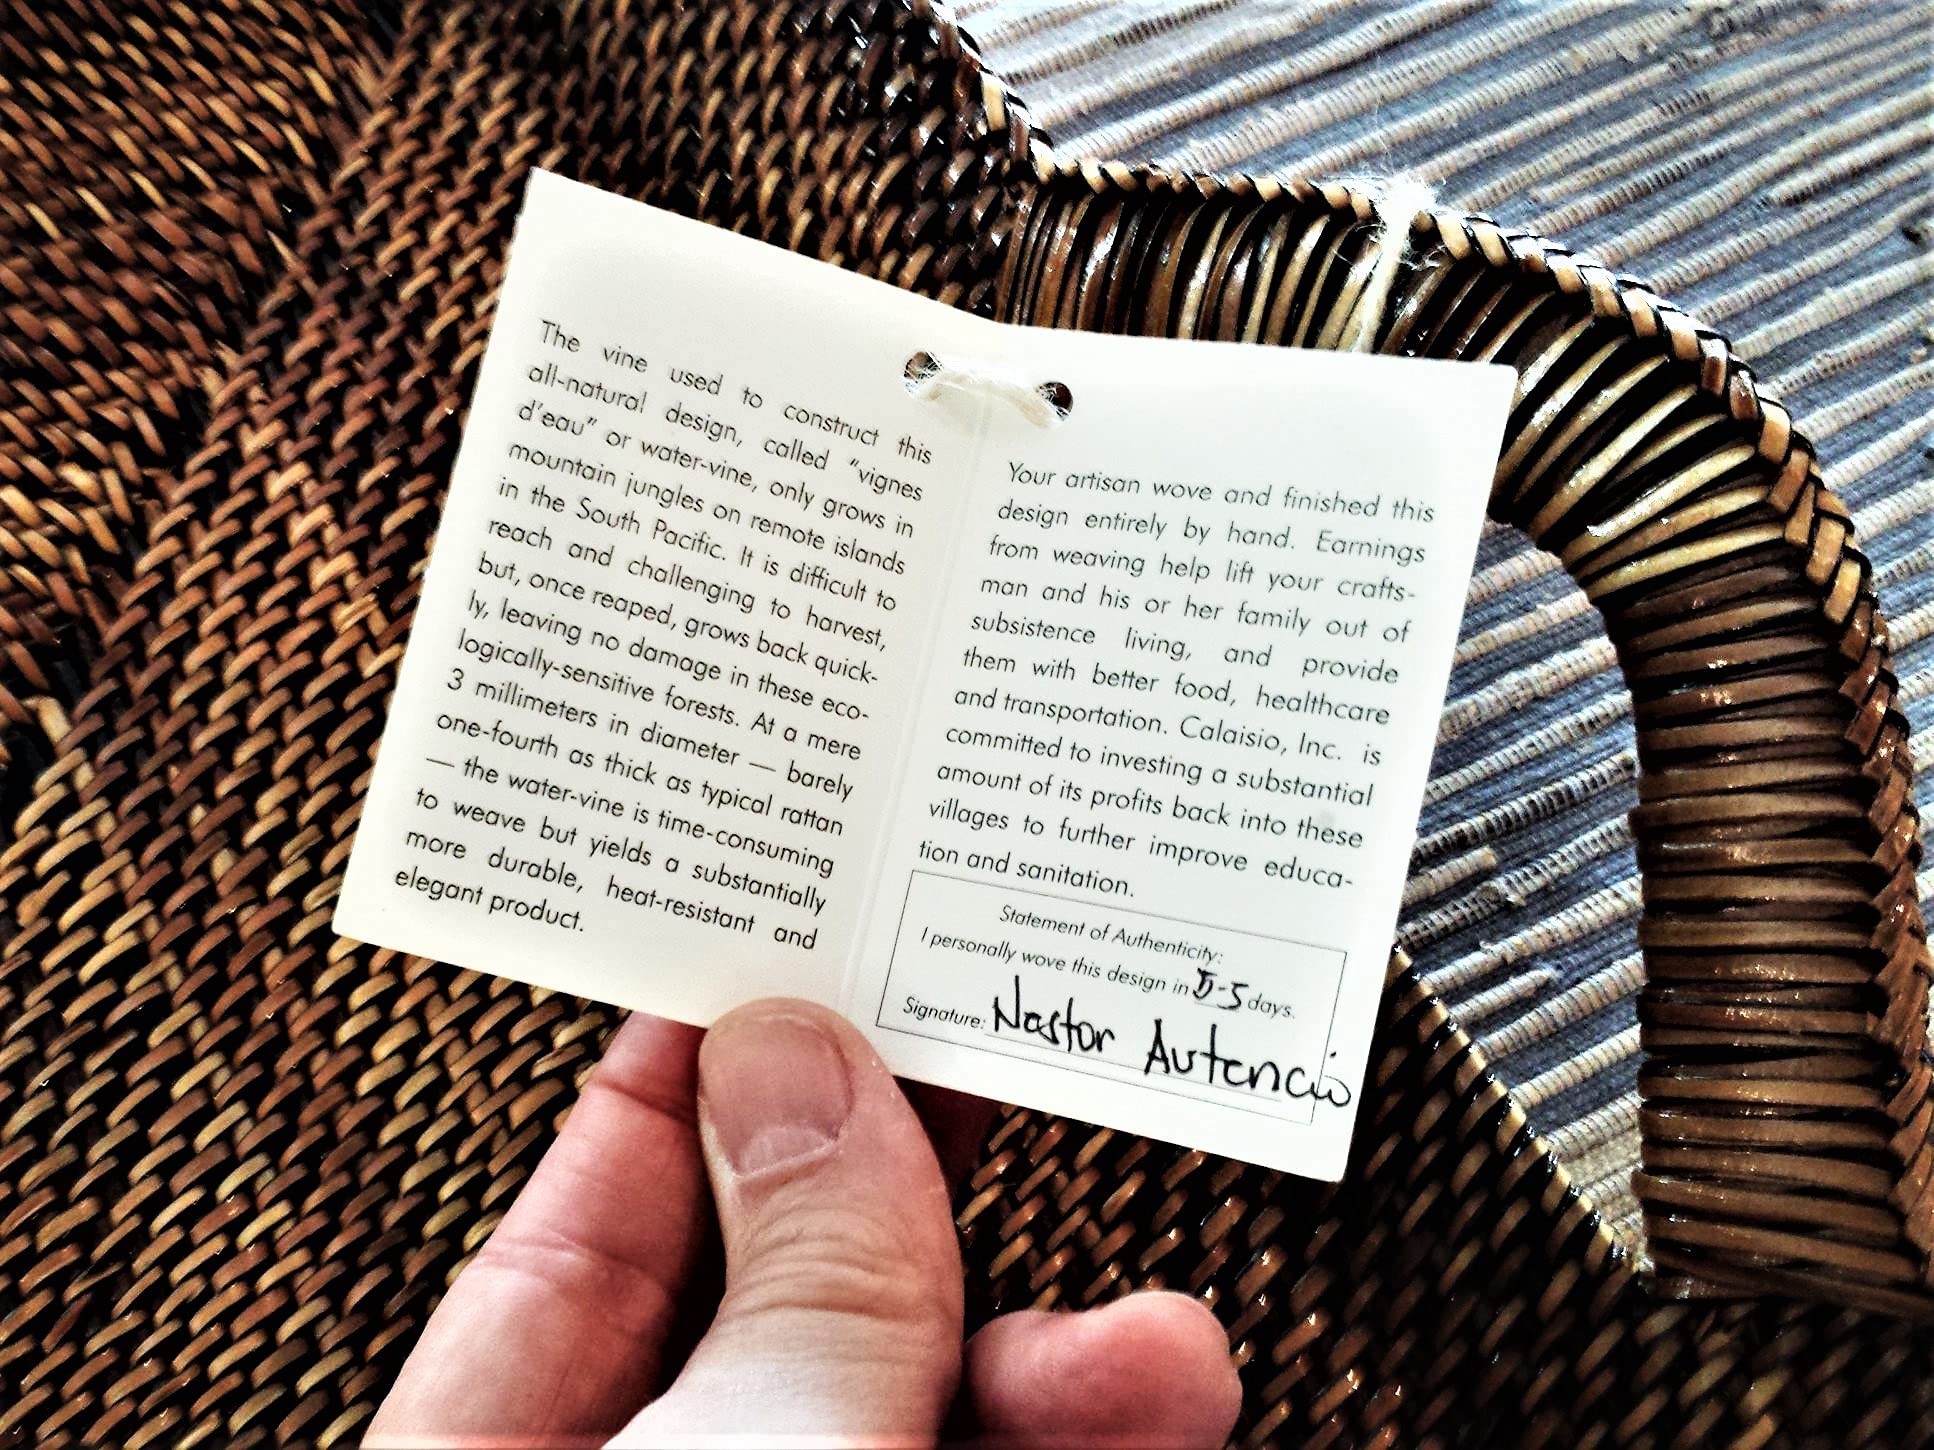 The vine used to construct this
all-natural design, called “vignes
d’eau” or water-vine, only grows in
mountain jungles on remote islands
in the South Pacific. It is difficult to
reach and challenging to harvest,
but, once reaped, grows back quick-
ly, leaving no damage in these eco-
logically-sensitive forests. At a mere
3 millimeters in diameter — barely
one-fourth as thick as typical rattan
— the water-vine is time-consuming
to weave but yields a substantially
more durable, heat-resistant and
elegant product.
Your artisan wove and finished this
design entirely by hand. Earnings
from weaving help lift your crafts-
man and his or her family out of
subsistence living, and provide
them with better food, healthcare
and transportation. Calaisio, Inc. is
committed to investing a substantial
amount of its profits back into these
villages to further improve educa-
tion and sanitation.
Statement of Authenticity:
I personally wove this design in days.
Signature: Nastor Autencio